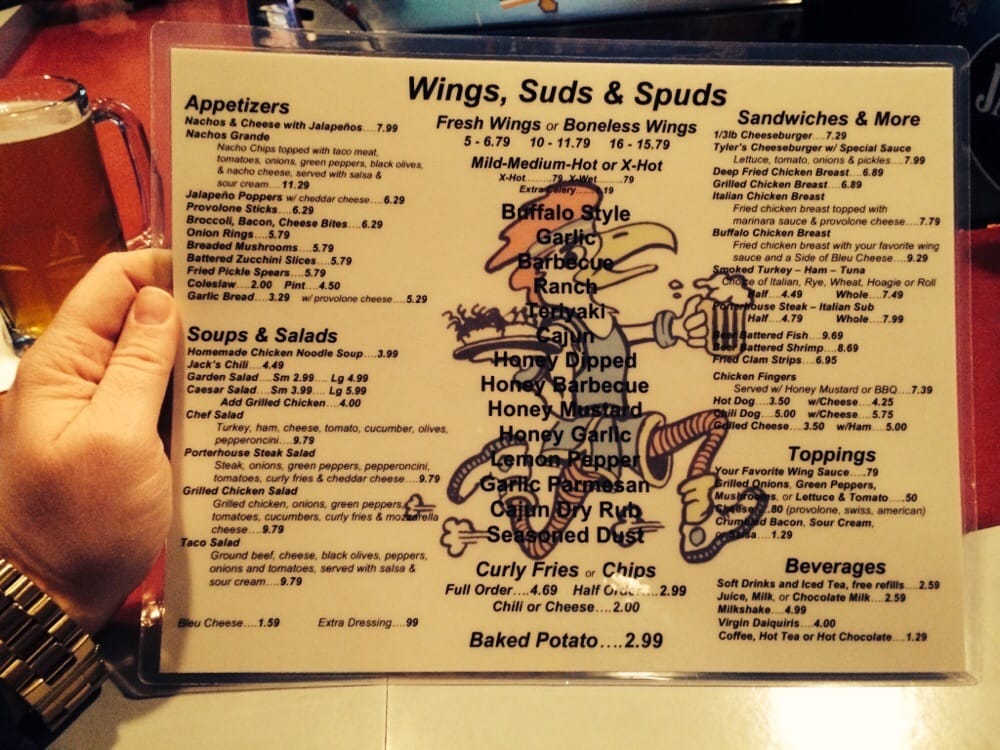 Wings, Suds & Spuds
Appetizers
Nachos & Cheese with Jalapeños....7.99
Nachos Grande
Nacho Chips topped with taco meat,
tomatoes, onions, green peppers, black olives,
& nacho cheese, served with salsa &
sour cream....11.29
Jalapeño Poppers w/ cheddar cheese....6.29
Provolone Sticks....6.29
Broccoli, Bacon, Cheese Bites....6.29
Onion Rings....5.79
Breaded Mushrooms....5.79
Battered Zucchini Slices....5.79
Fried Pickle Spears....5.79
Coleslaw....2.00 Pint....4.50
Garlic Bread....3.29 w/ provolone cheese....5.29
Soups & Salads
Homemade Chicken Noodle Soup....3.99
Jack's Chili....4.49
Garden Salad....Sm 2.99.... Lg 4.99
Caesar Salad....Sm 3.99.... Lg 5.99
Add Grilled Chicken....4.00
Chef Salad
Turkey, ham, cheese, tomato, cucumber, olives,
pepperoncini....9.79
Porterhouse Steak Salad
Steak, onions, green peppers, pepperoncini,
tomatoes, curly fries & cheddar cheese....9.79
Grilled Chicken Salad
Grilled chicken, onions, green peppers,
tomatoes, cucumbers, curly fries & mozzarella
cheese....9.79
Taco Salad
Ground beef, cheese, black olives, peppers,
onions and tomatoes, served with salsa &
sour cream....9.79
Bleu Cheese....1.59 Extra Dressing....99
Fresh Wings or Boneless Wings
5 - 6.79 10 - 11.79 16 - 15.79
Mild-Medium-Hot or X-Hot
X-Hot........79 X-Wet........79
Extra Celery........19
Buffalo Style
Garlic
Barbecue
Ranch
Teriyaki
Cajun
Honey Dipped
Honey Barbecue
Honey Mustard
Honey Garlic
Lemon Pepper
Garlic Parmesan
Cajun Dry Rub
Seasoned Dust
Curly Fries or Chips
Full Order....4.69 Half Order....2.99
Chili or Cheese....2.00
Baked Potato....2.99
Sandwiches & More
1/3lb Cheeseburger....7.29
Tyler's Cheeseburger w/ Special Sauce
Lettuce, tomato, onions & pickles....7.99
Deep Fried Chicken Breast....6.89
Grilled Chicken Breast....6.89
Italian Chicken Breast
Fried chicken breast topped with
marinara sauce & provolone cheese....7.79
Buffalo Chicken Breast
Fried chicken breast with your favorite wing
sauce and a Side of Bleu Cheese....9.29
Smoked Turkey – Ham – Tuna
Choice of Italian, Rye, Wheat, Hoagie or Roll
Half....4.49 Whole....7.49
Porterhouse Steak – Italian Sub
Half....4.79 Whole....7.99
Beer Battered Fish....9.69
Beer Battered Shrimp....8.69
Fried Clam Strips....6.95
Chicken Fingers
Served w/ Honey Mustard or BBQ....7.39
Hot Dog....3.50 w/Cheese....4.25
Chili Dog....5.00 w/Cheese....5.75
Grilled Cheese....3.50 w/Ham....5.00
Toppings
Your Favorite Wing Sauce....79
Grilled Onions, Green Peppers,
Mushrooms, or Lettuce & Tomato....50
Cheese....80 (provolone, swiss, american)
Crumbled Bacon, Sour Cream,
Salsa....1.29
Beverages
Soft Drinks and Iced Tea, free refills....2.59
Juice, Milk, or Chocolate Milk....2.59
Milkshake....4.99
Virgin Daiquiris....4.00
Coffee, Hot Tea or Hot Chocolate....1.29